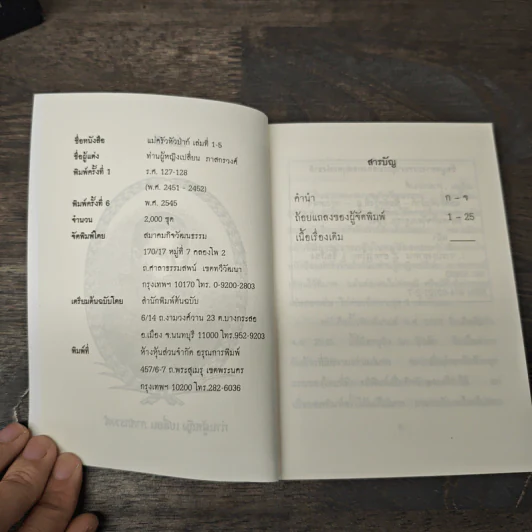 ชื่อหนังสือ แม่ครัวหัวป่าก์ เล่มที่ 1-5
ชื่อผู้แต่ง ท่านผู้หญิงเปลี่ยน ภาสกรวงศ์
พิมพ์ครั้งที่ 1 ร.ศ. 127-128
(พ.ศ. 2451 - 2452)
พิมพ์ครั้งที่ 6 พ.ศ. 2545
จำนวน 2,000 ชุด
จัดพิมพ์โดย สมาคมกิจวัฒนธรรม
170/17 หมู่ที่ 7 คลองไพ 2
ถ.ศาลาธรรมสพน์ เขตทวีวัฒนา
กรุงเทพฯ 10170 โทร. 0-9200-2803
เตรียมต้นฉบับโดย สำนักพิมพ์ต้นฉบับ
6/14 ถ.งามวงศ์วาน 23 ต.บางกระสอ
อ.เมือง จ.นนทบุรี 11000 โทร.952-9203
พิมพ์ที่ ห้างหุ้นส่วนจำกัด อรุณการพิมพ์
457/6-7 ถ.พระสุเมรุ เขตพระนคร
กรุงเทพฯ 10200 โทร.282-6036
สารบัญ
คำนำ ก - ง
ถ้อยแถลงของผู้จัดพิมพ์ 1 - 25
เนื้อเรื่องเดิม